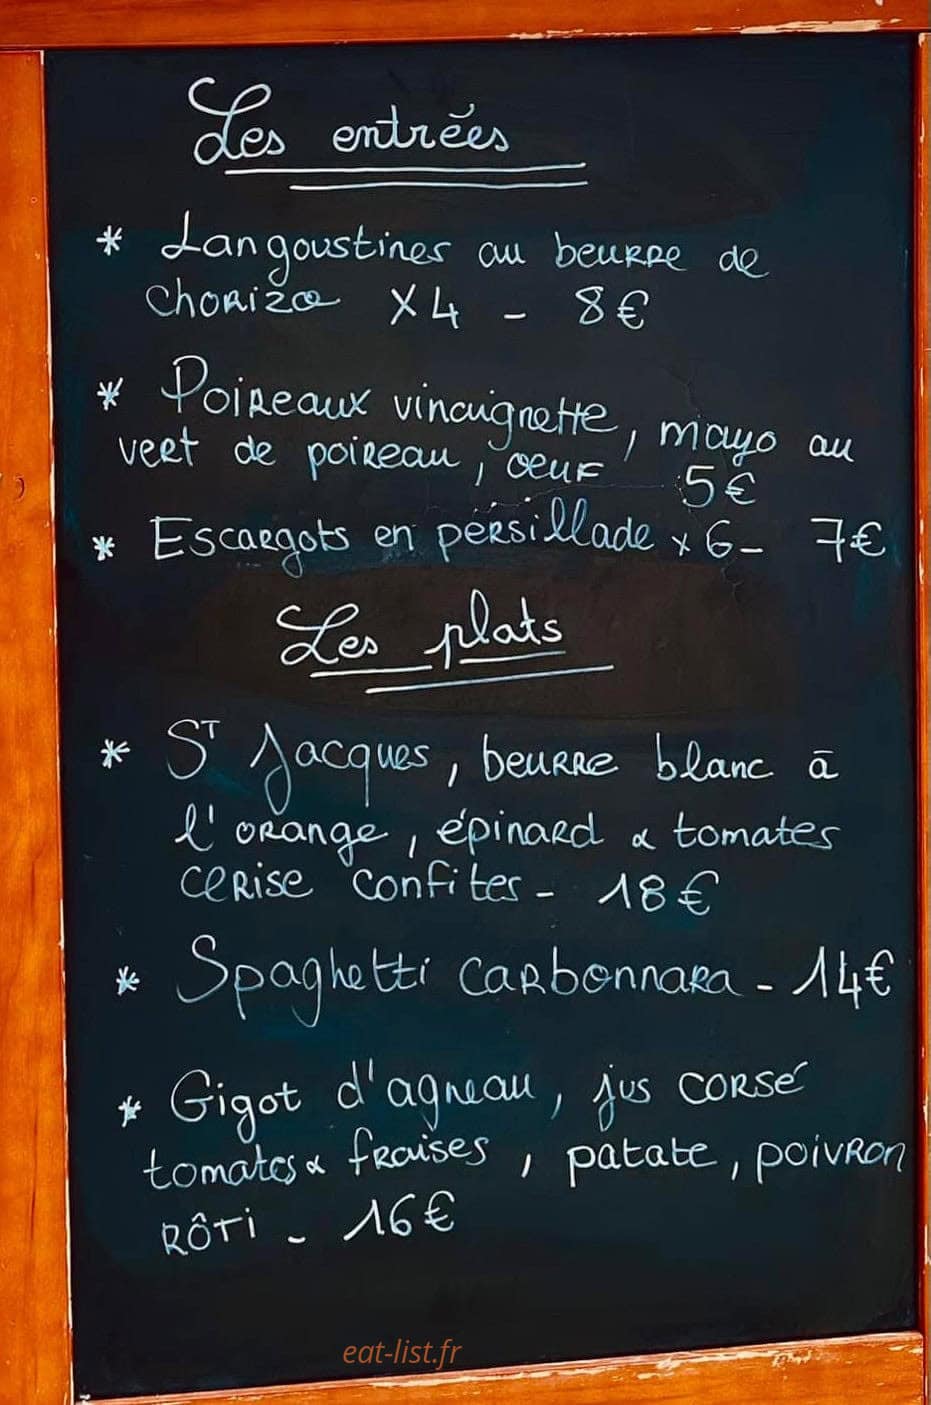 Les entrées
* Langoustines au beurre de
chorizo x4 - 8€
* Poireaux vinaigrette, mayo au
vert de poireau, oeuf 5€
* Escargots en persillade x 6 - 7€
Les plats
* ST Jacques, beurre blanc à
l'orange, épinard & tomates
cerise confites - 18€
* Spaghetti carbonnara - 14€
* Gigot d'agneau, jus corsé
tomates & fraises, patate, poivron
rôti - 16€
eat-list.fr